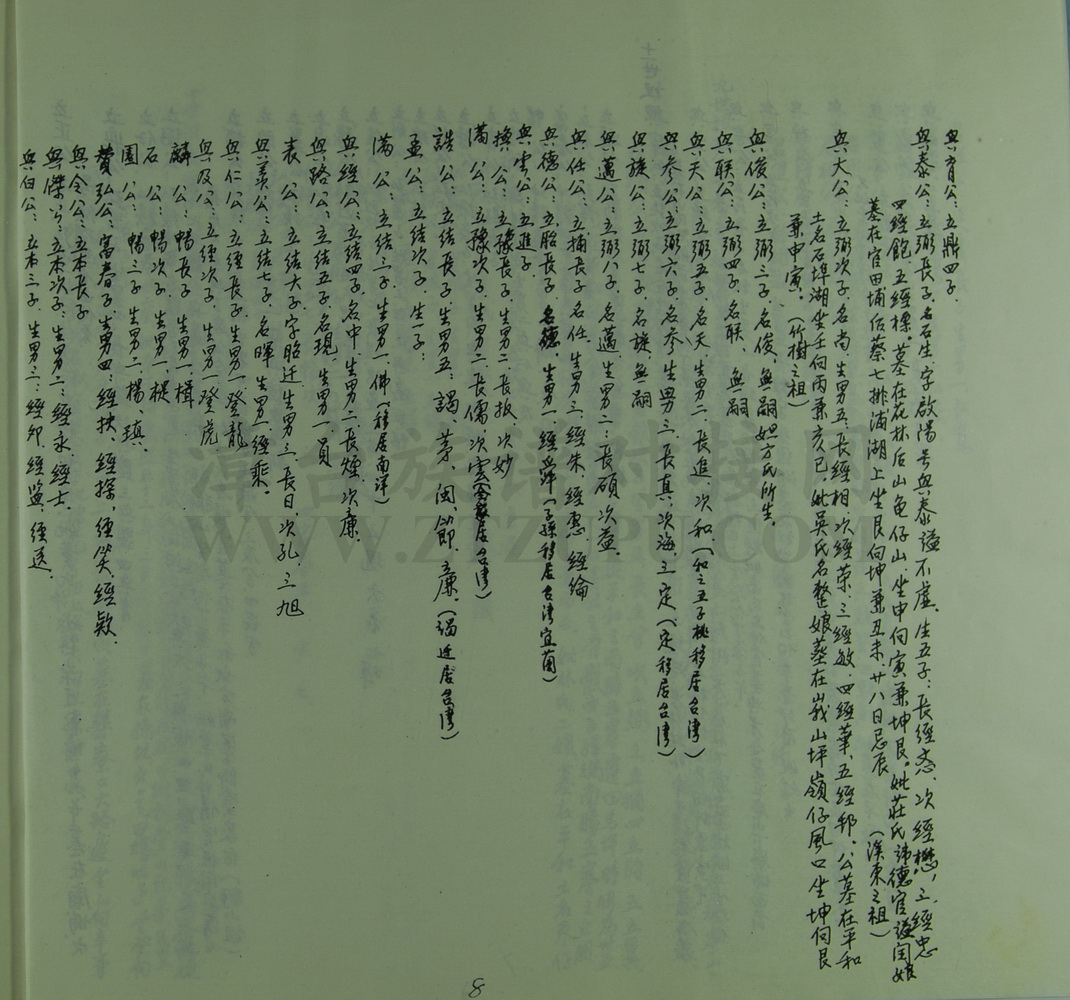 與育公：立鼎四子.
與泰公：立弼長子.名石生.字啟陽.号與泰.谥不虛.生五子：長經态.次經懋,三經忠
四經飽.五經標.墓在花林后山龟仔山.坐申向寅兼坤艮.妣莊氏諱德官谥閏娘
墓在官田埔后蔡七排浦湖上坐艮向坤兼丑未廿八日忌辰 (溪東之祖)
與大公：立弼次子.名尚.生男五：長經相.次經荣.三經敏.四經華.五經邦.公墓在平和
土名石埠湖坐壬向丙兼亥已.妣吳氏名整娘墓在峩山坪嶺仔風口坐坤向艮
兼申寅.(竹樹之祖)
與俊公：立弼三子.名俊.無嗣.妲方氏所生.
與联公：立弼四子.名联.無嗣
與天公：立弼五子.名天.生男二.長進.次和.(和之五子桃移居台湾)
與參公：立弼六子.名參.生男三.長真.次海.三定(定移居台湾)
與旋公：立弼七子.名旋.無嗣
與邁公：立弼八子.名邁.生男二：長碩.次益.
與任公：立捕長子.名任.生男三.經朱.經惠.經綸
與德公：立胎長子.名德.生男一.經舜(子孫移居台湾宜蘭)
與雲公：立進子
換公：立豫長子.生男二.長振.次妙
滿公：立豫次子.生男二.長儒.次雲(移居台湾)
誥公：立結長子.生男五：謁.茅.闽.節.廉.(謁迁居台湾)
孟公：立结次子.生一子：
满公：立结三子.生男一.佛(移居南洋)
與經公：立结四子.名中.生男二.長煙.次廉.
與路公：立结五子.名現.生男一.員
表公：立结六子.字昭迁.生男三.長日.次孔.三旭
與義公：立结七子.名暉.生男一.經乘.
與仁公：立經長子.生男一.登龍
與及公：立經次子.生男一.登虎
麟公：暢長子.生男一.楫
石公：暢次子.生男一.槐
圓公：暢三子.生男二.楊、璸.
贊弘公：富春子.生男四：經扶.經探.經笑.經欵.
與令公：立本長子
與傑公：立本次子：生男二：經永.經士.
與白公：立本三子.生男三：經卯.經監.經送.
8